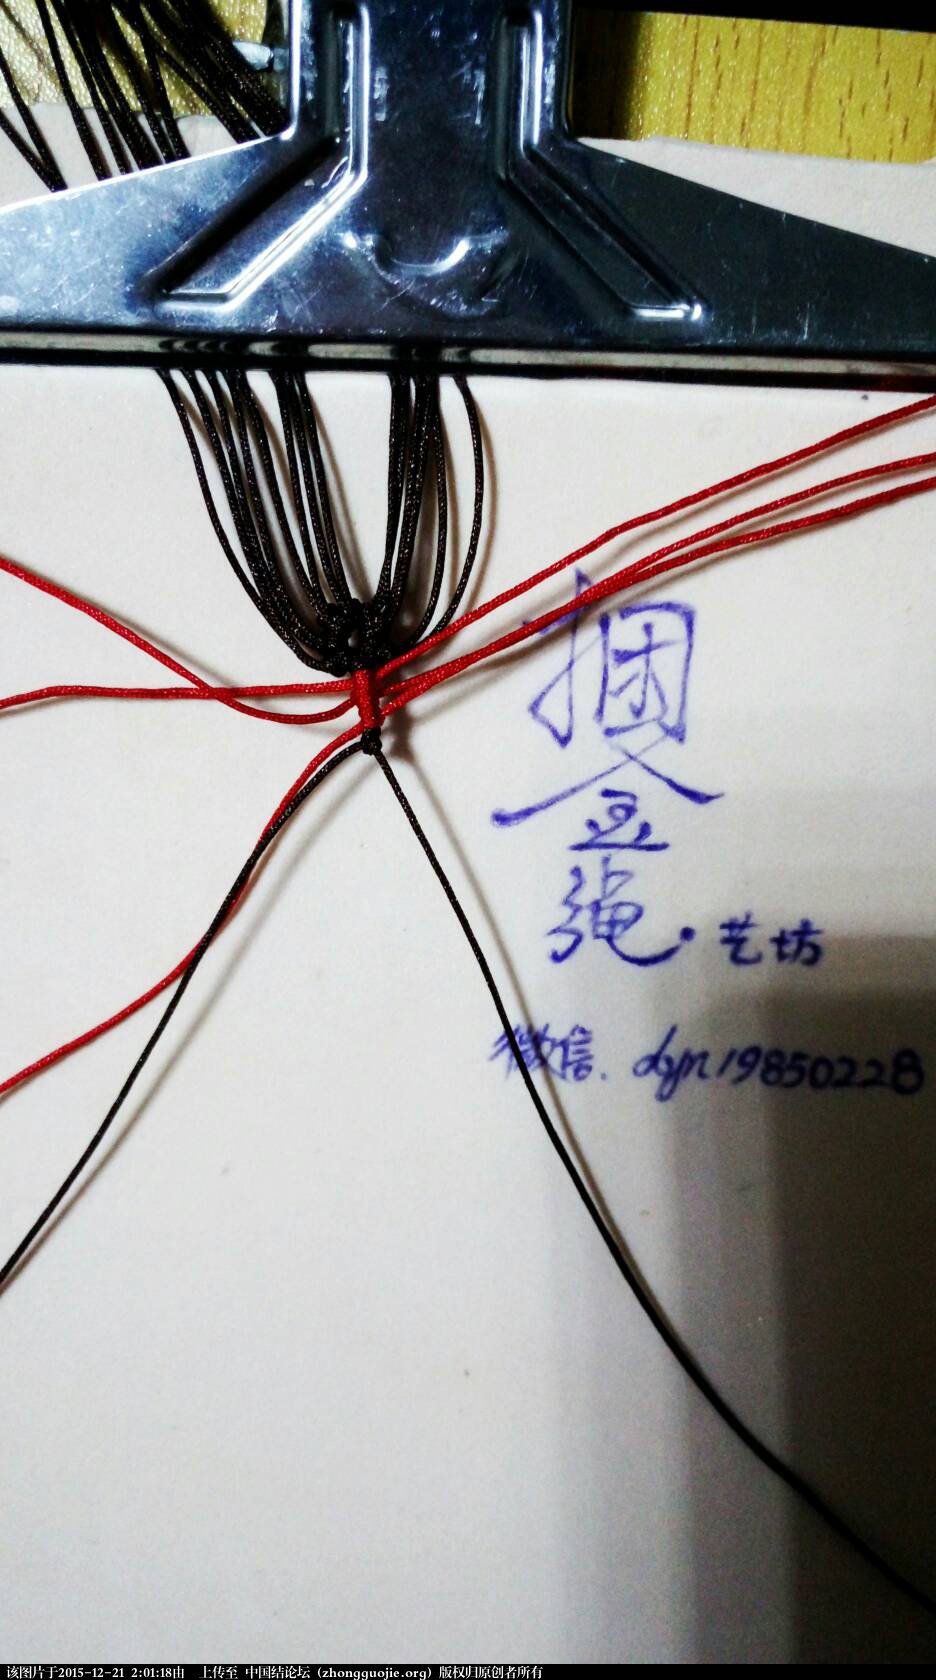 捆
金
绳·艺坊
微信.dyn19850228
该图片于2015-12-21 2:01:18由 上传至 中国结论坛 (zhongguojie.org) 版权归原创者所有